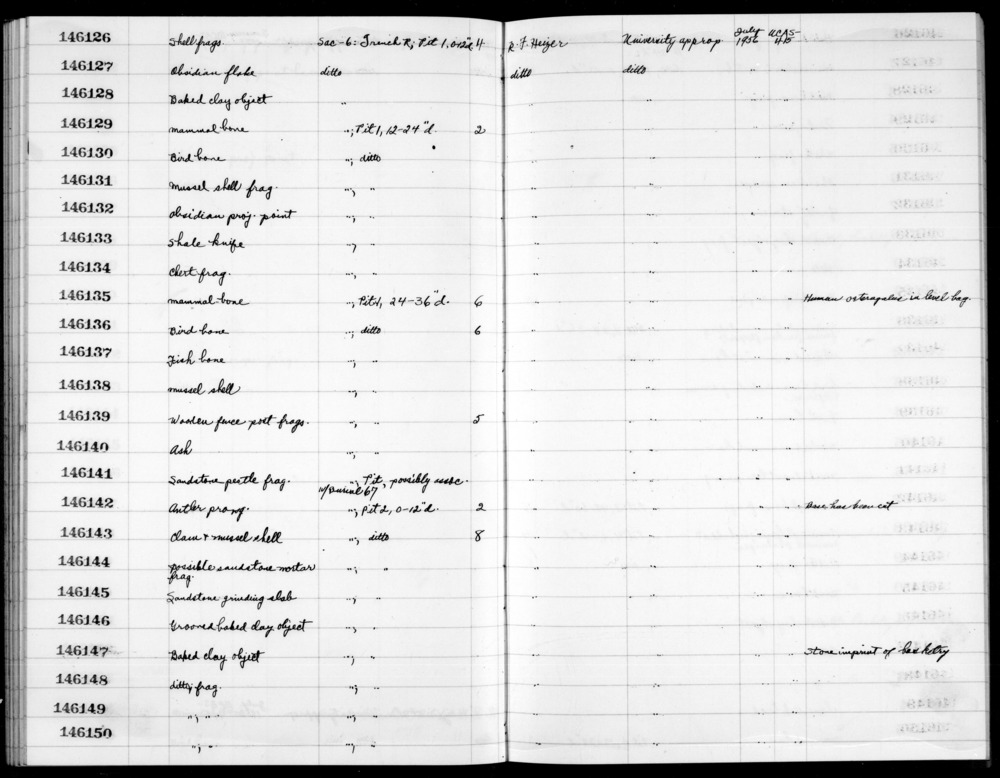 146126 Shell frags. Sac-6: Trench R; Pit 1, 0-12"d 4 R. F. Heizer University approp July 1956 UCAS-40
146127 Obsidian flake ditto ditto ditto " "
146128 Baked clay object " " " " "
146129 mammal bone "; Pit 1, 12-24"d. 2 " " " "
146130 Bird bone "; ditto " " " "
146131 Mussel shell frag. "; " " " " "
146132 Obsidian proj. point "; " " " " "
146133 Shale knife "; " " " " "
146134 Chert frag. "; " " " " "
146135 mammal bone "; Pit 1, 24-36"d. 6 " " " " Human in level bag.
146136 Bird bone "; ditto 6 " " " "
146137 Fish bone "; " " " " "
146138 mussel shell "; " " " " "
146139 Wooden fence post frags. "; " 5 " " " "
146140 Ash "; " " " " "
146141 Sandstone pestle frag. "; Pit, possibly assoc. " " " "
w/Burial 67
146142 Antler prong. "; Pit 2, 0-12"d. 2 " " " " Base has been cut
146143 Clam + mussel shell "; ditto 8 " " " "
146144 possible sandstone mortar "; " " " " "
frag.
146145 Sandstone grinding slab "; " " " " "
146146 Grooved baked clay object "; " " " " "
146147 Baked clay object "; " " " " " imprint of basketry
146148 ditto; frag. "; " " " " "
146149 "; " "; " " " " "
146150 "; " "; " " " " "